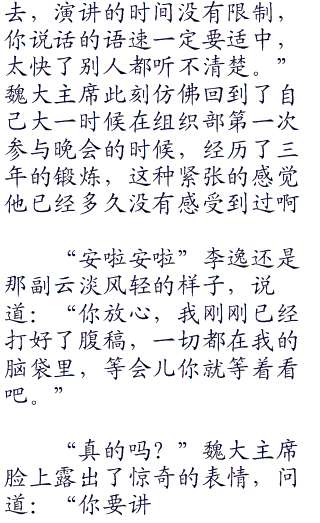 去，演讲的时间没有限制，
你说话的语速一定要适中，
太快了别人都听不清楚。”
魏大主席此刻仿佛回到了自
己大一时候在组织部第一次
参与晚会的时候，经历了三
年的锻炼，这种紧张的感觉
他已经多久没有感受到过啊
“安啦安啦”李逸还是
那副云淡风轻的样子，说
道：“你放心，我刚刚已经
打好了腹稿，一切都在我的
脑袋里，等会儿你就等着看
吧。”
“真的吗？”魏大主席
脸上露出了惊奇的表情，问
道：“你要讲